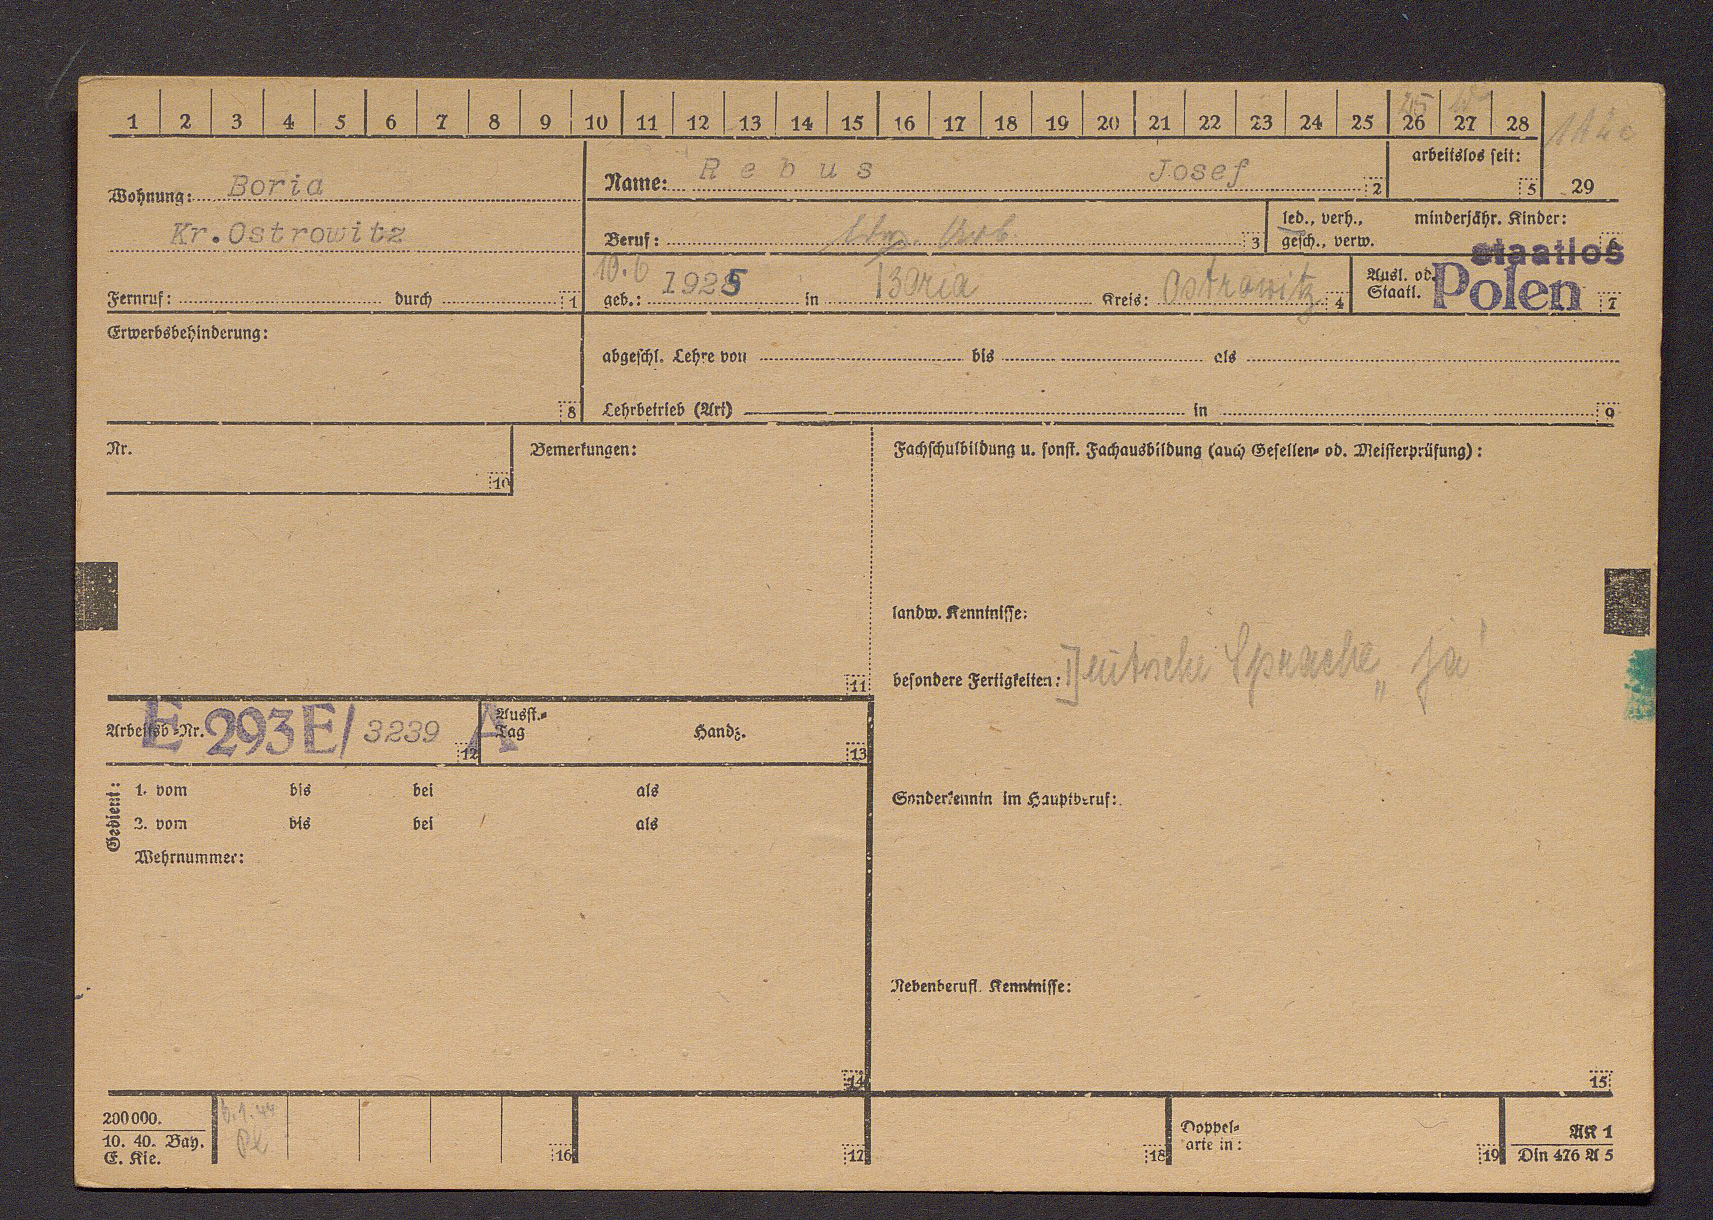 1 2 3 4 5 6 7 8 9 10 11 12 13 14 15 16 17 18 19 20 21 22 23 24 25 26 27 28
25
Wohnung: Boria
Kr.Ostrowitz
Fernruf: durch 1
Name: Rebus Josef 2
arbeitslos seit:
5 29
Beruf: Arb. 3
led., verh., minderjähr. Kinder:
gesch., verw. 6
staatlos
10.6
geb.: 1925 in Boria Kreis: Ostrowitz 4
Ausl. od.
Staatl. Polen 7
Erwerbsbehinderung:
8
abgeschl. Lehre von bis als
Lehrbetrieb (Art) in 9
Nr.
10
Bemerkungen:
11
Fachschulbildung u. sonst. Fachausbildung (auch Gesellen- od. Meisterprüfung):
landw. Kenntnisse:
besondere Fertigkeiten: Deutsche Sprache „ja"
Arbeitsb.-Nr. E 293E/ 3239 12
A
Ausst.-
Tag Handz.
13
Gedient:
1. vom bis bei als
2. vom bis bei als
Wehrnummer:
14
Sonderkenntn im Hauptberuf:
Nebenberufl. Kenntnisse:
15
200000.
10. 40. Bay.
E. Kie.
16
17
18
Doppel-
arte in:
19
AK 1
Din 476 A 5